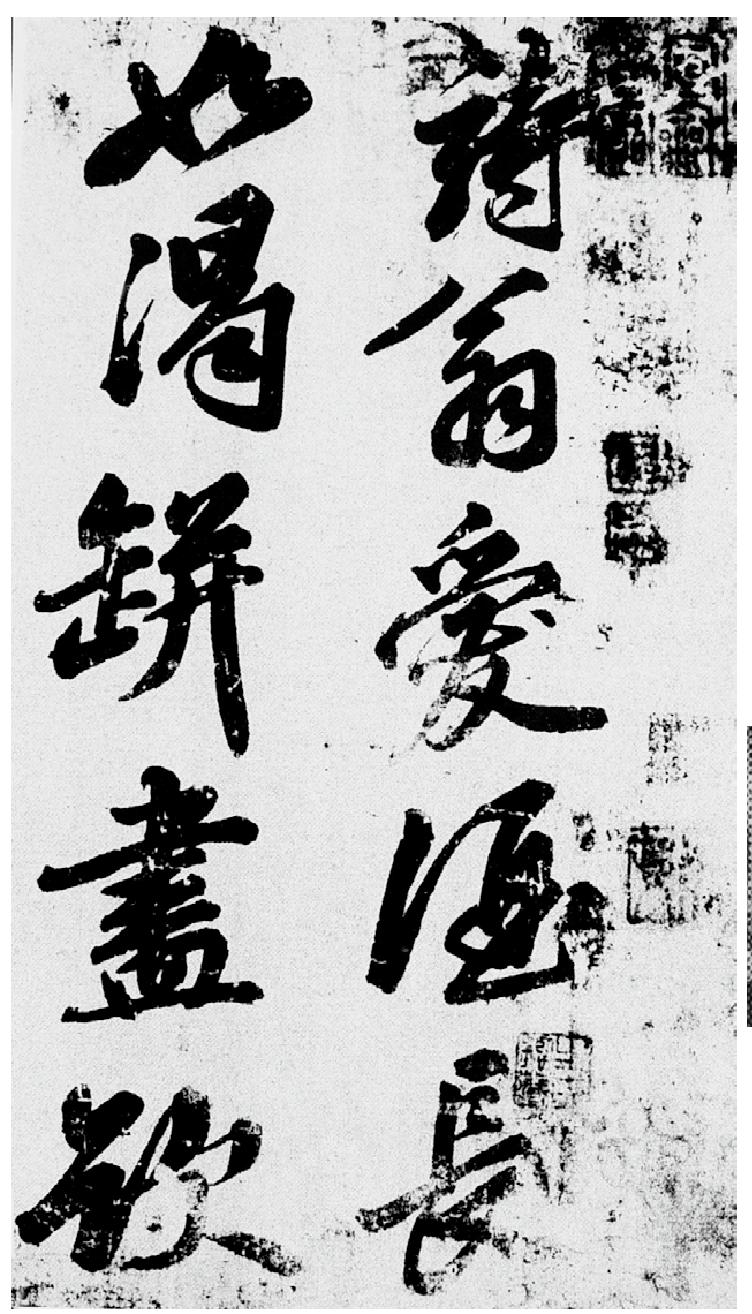 詩翁愛酒長
如渴缾盡欲